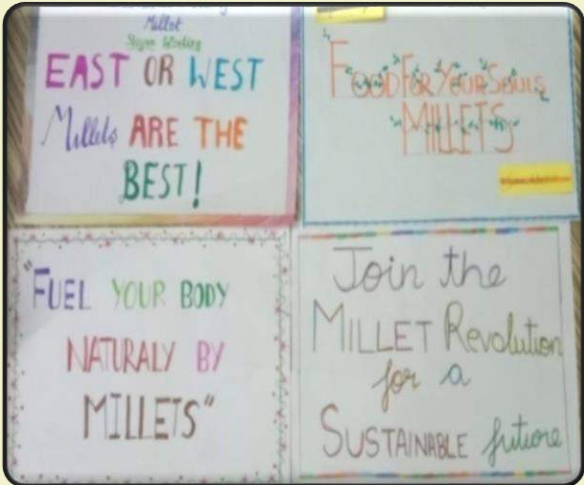 Millet
Slogan Writing
EAST OR WEST
Millets ARE THE
BEST!
FOOD FOR YOUR SOULS
MILLETS
"FUEL YOUR BODY
NATURALY BY
MILLETS"
Join the
MILLET Revolution
for a
SUSTAINABLE future